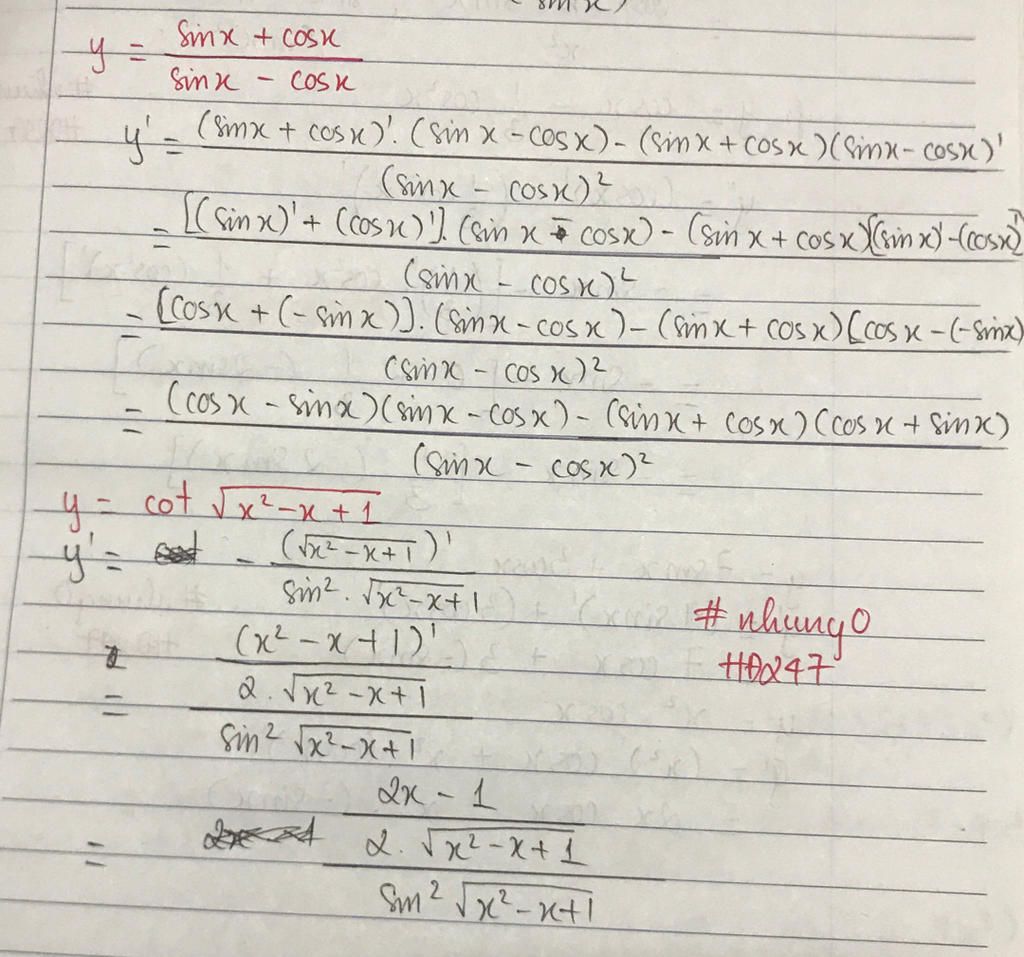 y = (sinx + cosx)/(sinx - cosx)
y' = ((sinx + cosx)'.(sinx - cosx) - (sinx + cosx)(sinx - cosx)')/(sinx - cosx)²
= ([(sinx)' + (cosx)'].(sinx - cosx) - (sinx + cosx)[(sinx)' - (cosx)'])/(sinx - cosx)²
= ([cosx + (-sinx)].(sinx - cosx) - (sinx + cosx)[cosx - (-sinx))/(sinx - cosx)²
= ((cosx - sinx)(sinx - cosx) - (sinx + cosx)(cosx + sinx))/(sinx - cosx)²
y = cot √(x² - x + 1)
y' = - (√(x² - x + 1))'/(sin².√(x² - x + 1))
= ((x² - x + 1)'/(2.√(x² - x + 1)))/(sin² √(x² - x + 1))
# nhungO
HĐ247
= ((2x - 1)/(2.√(x² - x + 1)))/(sin² √(x² - x + 1))